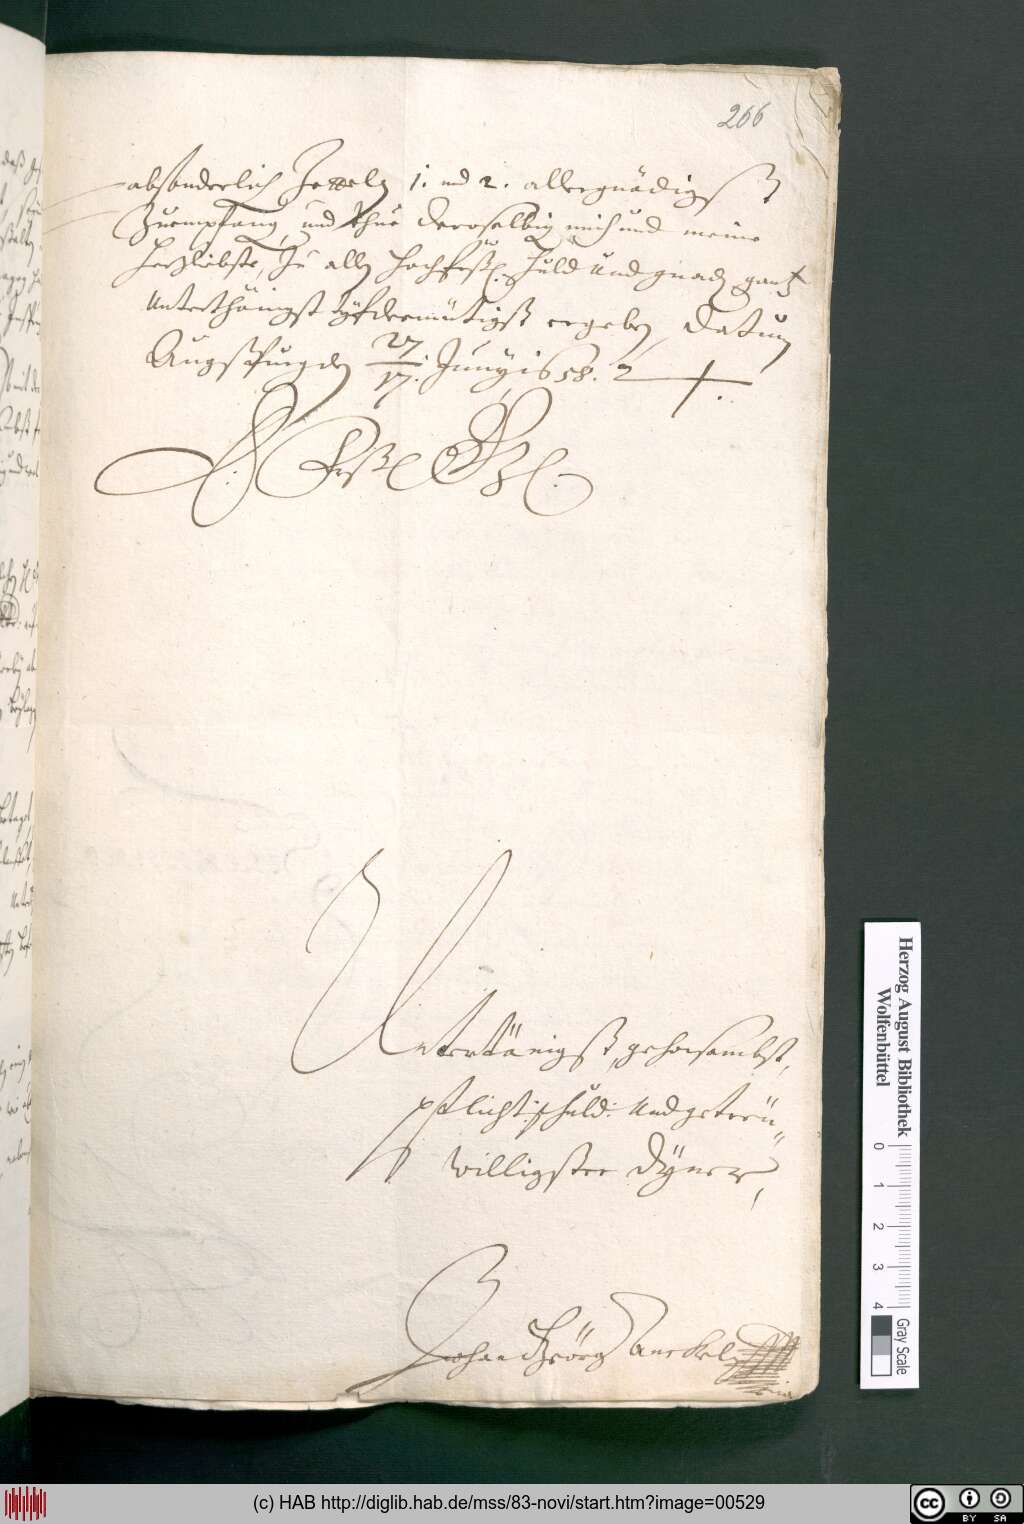 266
absonderlich Zettelen 1. und 2. allergnädigst
Zuempfang, und thue deroselbig mich und meine
herzliebste, Zu allen hochfürstl. huld und gnaden gantz
Unterthänigst demütigst ergeben, Datum
Augspurg den 27/17. Juny 1658.
E. Frstl
Untertänigst, gehorsambst,
pflicht: schuld: Und getreü
willigster dÿner,
Johan Geörg Anckel
Herzog August Bibliothek
Wolfenbüttel
0 1 2 3 4
Gray Scale
(c) HAB http://diglib.hab.de/mss/83-novi/start.htm?image=00529
cc BY SA